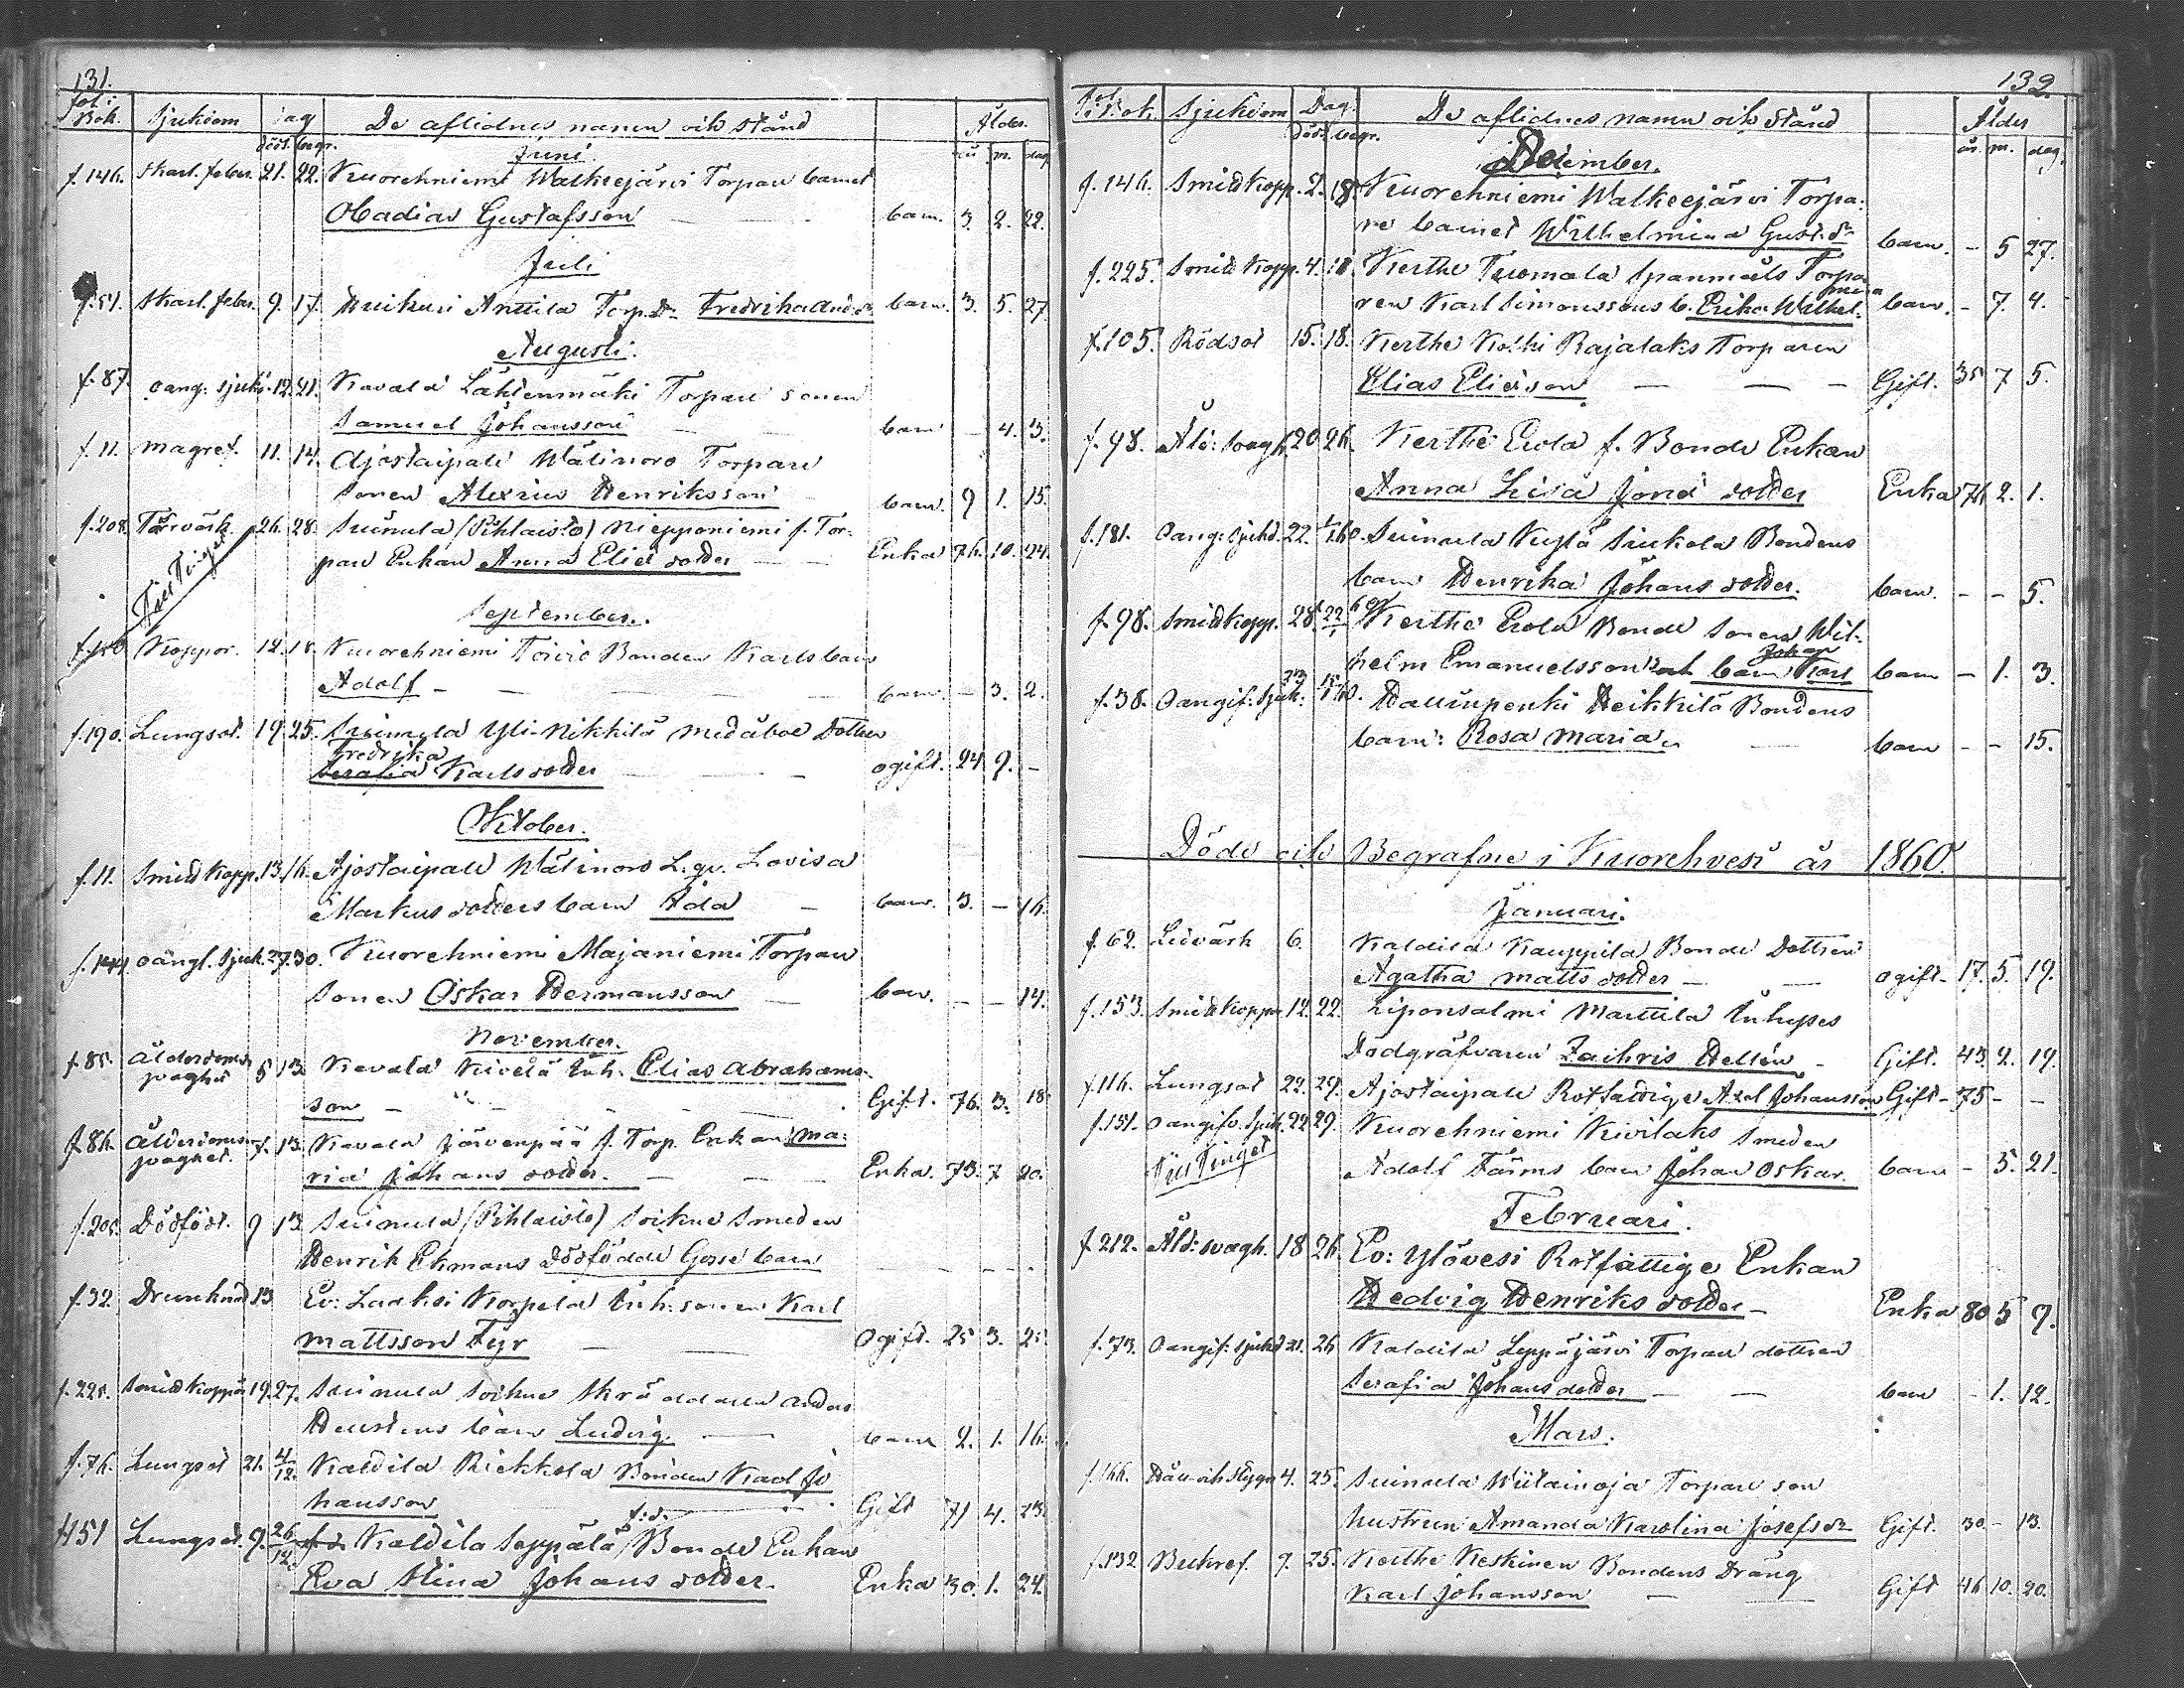 131.
fol: i Bok. Sjukdom dag De aflidnes namn och stånd Ålder.
död. begr. år m. dag
Juni.
f. 146. Skarl. feber. 21. 22. Kuorehniemi Walkeejärvi Torpare barnet
Obadias Gustafsson barn. 3. 2. 22.
Juli
f. 51. Skarl. feber. 9. 17. Anttila Torp. dr. Fredrika barn. 3. 5. 27.
Augusti.
f. 87. oang: sjukd. 12. 21. Kavala Lähtenmäki Torpare sonen
Samuel Johansson barn - 4. 3.
f. 11. magref. 11. 14. Ajostaipale Wälinoro Torpare
sonen Alexius Henriksson barn. 9 1. 15.
f. 208. Torrvärk. 26. 28. Suinula (Pihlaisto) Niepponiemi f. Tor-
pare Enkan Anna Eliæ dotter Enka 76. 10. 24.
Till Tinget
September.
Koppor. 12. 18. Kuorehniemi Toivio Bonden Karls barn
Adolf barn. - 3. 2.
f. 190. Lungsot. 19. 25. Suinula Yli-Nikkilä medåboe Dottren
Fredrika
Serafia Karlsdotter ogift. 24 9. -
Oktober.
f. 11. Smidkopp. 13. 16. Ajostaipale Wälinoro L. qv. Lovisa
Markus dotters barn Ida barn. 3. - 16.
f. 144. oangl. sjuk. 27. 30. Kuorehniemi Majaniemi Torpare
sonen Oskar Hermansson barn. - - 14.
November.
f. 85. Ålderdoms svaghet 5 13. Kavala Kivelä Inh. Elias Abrahams-
son Gift. 76. 3. 18
f. 86. Ålderdoms svaghet. 7. 13. Kavala Järvenpää f. Torp. Enkan Ma-
ria Johans dotter. Enka. 73. 7 20.
Dödfödt. 9 13. Suinula (Pihlaisto) Soikue Smeden
Henrik Ekmans dödfödde Gosse barn
f. 32. Drunknad 13 Ev: Laaksi Korpela Inh. sonen Karl
Mattsson Fyr Ogift. 25 3. 25
f. 225. Smidkoppor 19. 27. Suinula Soikue Skräddaren Anders
barn Ludvig. barn 2. 1. 16.
f. 76. Lungsot 21. 4/12. Kaldila Riekkola Bonden Karl Jo
hansson Gift 71 4. 23.
f 51 Lungsot. 9. 26/12. Kaldila Seppälä f. d. Bonde Enkan
Eva Stina Johans dotter. Enka 30. 1. 24.
132.
Fol. i Bok. Sjukdom Dag. De aflidnes namn och stånd Ålder
död. begr. år. m. dag.
December.
f. 146. Smidkopp. 2. 18. Kuorehniemi Walkeejärvi Torpa-
re barnet Wilhelmina Gust. dr barn. - 5 27.
f. 225. Smidkopp. 4. 18. Kerthe Tuomala Spanmåls Torpa
ren Karl Simonssons b. Erika Wilhel. mina barn. - 7. 4.
f. 105. Rödsot 15. 18. Kerthe Koski Rajalaks Torparen
Elias Eliæson Gift. 35 7 5.
f. 98. Åld: svagh. 20. 26. Kerthe Erola f. Bonde Enkan
Anna Lisa Jonæ dotter Enka 76 2. 1.
f. 181. Oang: sjukd. 22. 1/1 60. Suinula Kylä Siukola Bondens
barn Henrika Johans dotter. barn. - - 5.
f. 98. Smidkopp. 28. 22/1 60 Kerthe Erola Bonde sonen Wil-
helm Emanuelssons barn Karl Johan barn - 1. 3.
f. 38. Oangif: sjuk: 23 15/1 60. Hauunpenki Heikkilä Bondens
barn: Rosa Maria barn - - 15.
Döde och Begrafne i Kuorehvesi år 1860.
Januari.
f. 62. Ledvärk 6. Kaldila Kauppila Bonde Dottren
Agatha Matts dotter ogift. 17. 5. 19.
f. 153. Smidkoppor 12. 22. Liponsalmi Marttila Inhyses
Dödgräfvaren Zachris Hellén Gift. 43 2. 19.
f. 116. Lungsot 22. 29. Ajostaipale Rotfattige Axel Johansson Gift - 75 - -
f. 151. Oangifv. sjuk. 22 29. Kuorehniemi Kivilaks Smeden
Till Tinget
Adolf Färms barn Johan Oskar. barn - 5. 21.
Februari.
f. 212. Åld: svagh. 18 26. Ev: Ylövesi Rotfattige Enkan
Hedvig Henriks dotter Enka 80 5 9.
f. 73. Oangif: sjukd 21. 26 Kaldila Leppäjärvi Torpare dottren
Serafia Johans dotter barn - 1. 12.
Mars.
f. 166. Håll och Stygn 4. 25. Suinula Wiitainoja Torpare son
hustrun Amanda Karolina Josefs dr Gift. 30. - 13.
f. 132 Bukref. 9. 25. Kerthe Keskinen Bondens Dräng
Karl Johansson Gift 46 10. 20.